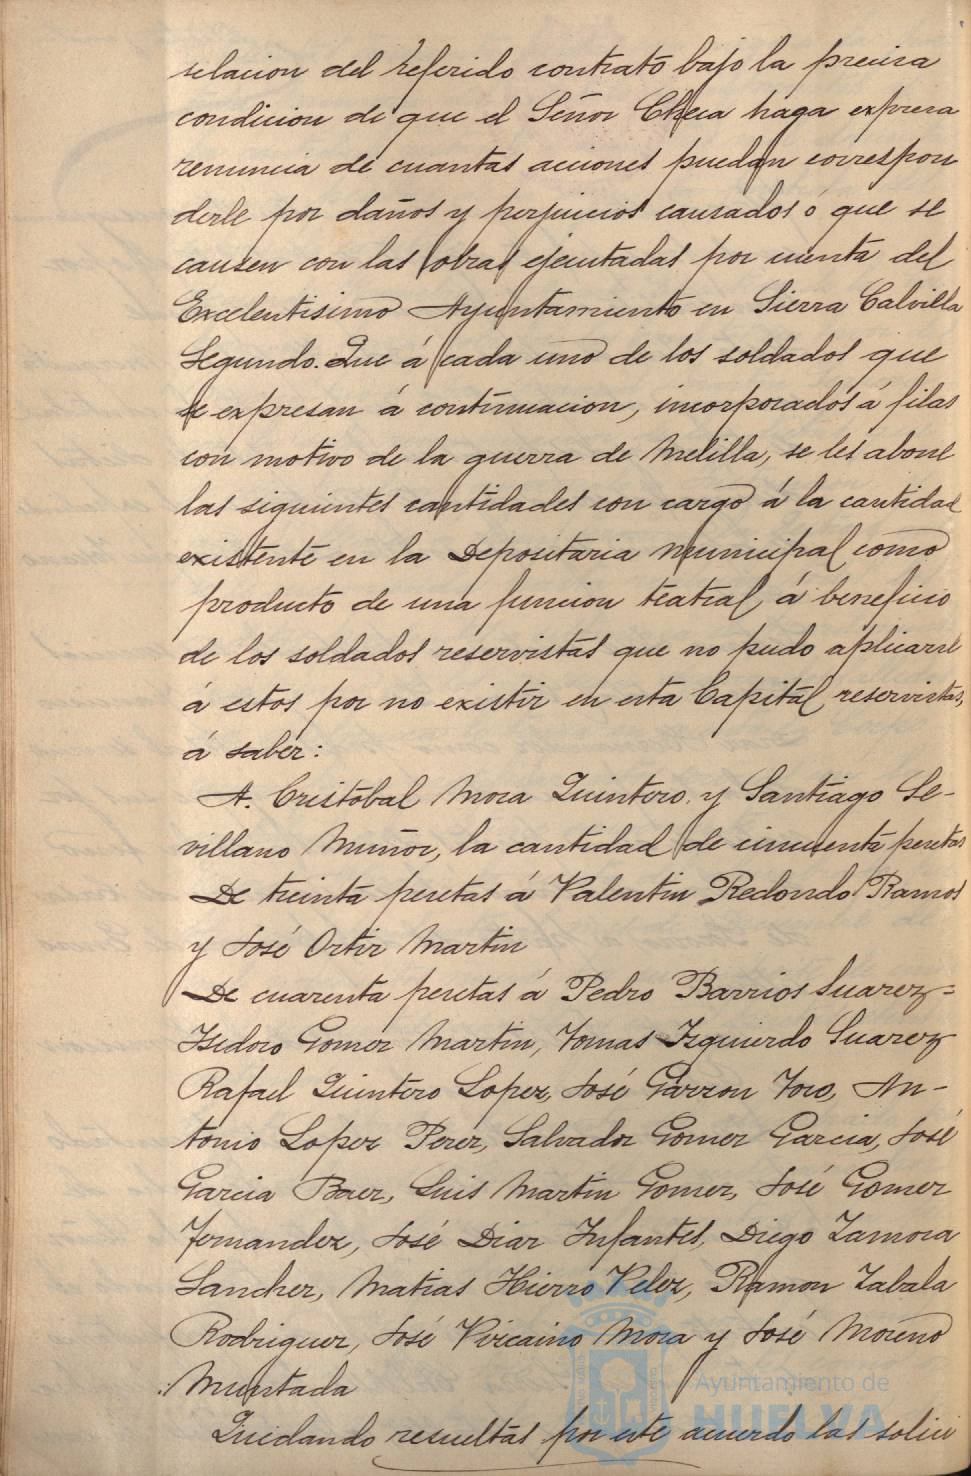 selacion del referido contrato bajo la precisa
condicion de que el Señor Checa haga expresa
renuncia de cuantas acciones puedan correspon
derle por daños y perjuicios causados ó que se
causen con las obras ejecutadas por cuenta del
Excelentisimo Ayuntamiento en Sierra Calvilla
Segundo. Que á cada uno de los soldados que
se expresan á continuacion, incorporados á filas
con motivo de la guerra de Melilla, se les abone
las siguientes cantidades con cargo á la cantidad
existente en la Depositaria municipal como
producto de una funcion teatral á beneficio
de los soldados reservistas que no pudo aplicarse
á estos por no existir en esta Capital reservistas,
á saber:
A. Cristobal Mora Quintero y Santiago Se-
villano Muñoz, la cantidad de cincuenta pesetas
De treinta pesetas á Valentin Redondo Ramos
y José Ortiz Martin
De cuarenta pesetas á Pedro Barrios Suarez=
Isidoro Gomez Martin, Tomas Izquierdo Suarez
Rafael Quintero Lopez, José Garzon Toro, An-
tonio Lopez Perez, Salvador Gomez Garcia, José
Garcia Baez, Luis Martin Gomez, José Gomez
Fernandez, José Diaz Infantes, Diego Zamora
Sanchez, Matias Hierro Velez, Ramon Zabala
Rodriguez, José Vizcaino Mora y José Moreno
Muntada
Quedando resueltas por este acuerdo las solici
Ayuntamiento de
HUELVA